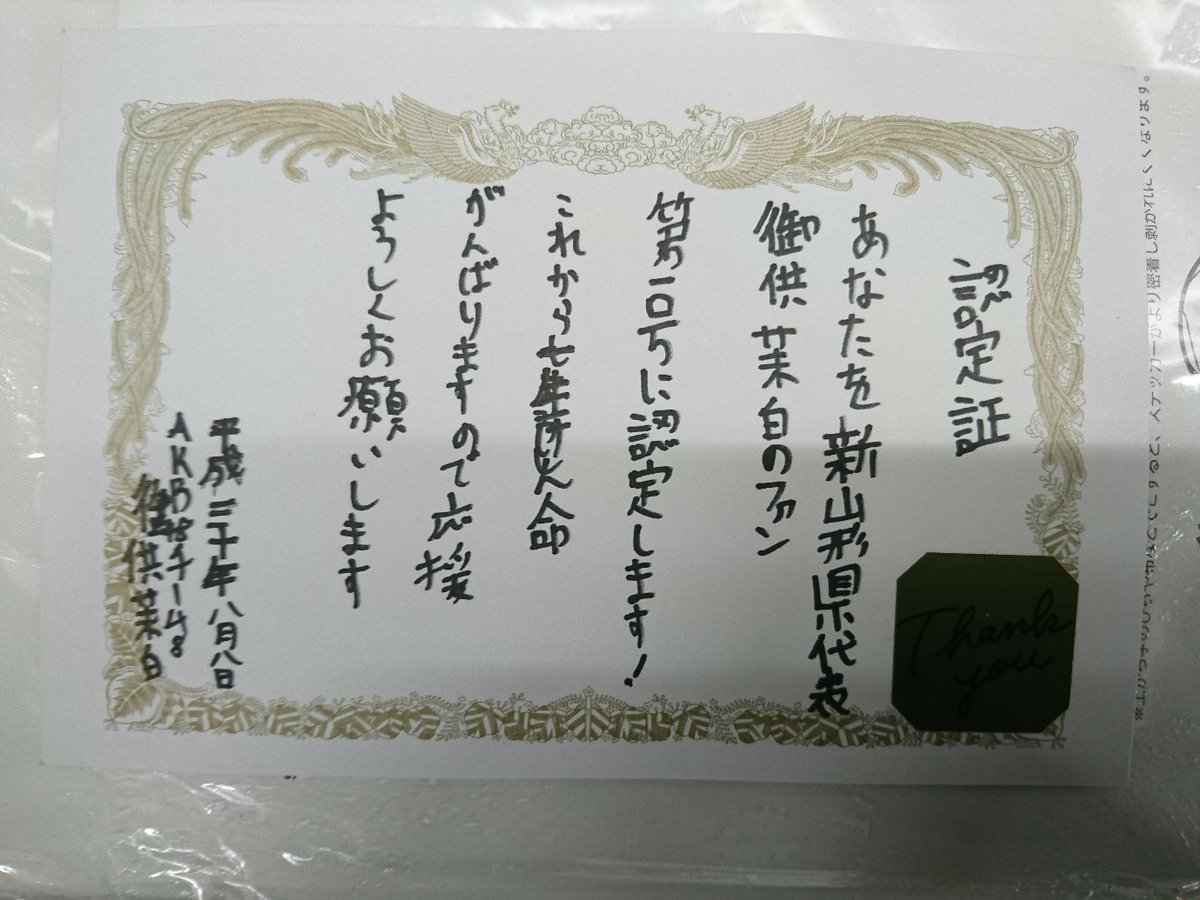 認定証
あなたを新山形県代表
御供茉白のファン
第一号に認定します!
これから
命
がんばりますので応援
よろしくお願いします
平成三十年八月八日
AKB48チーム8
御供茉白
Thank
you
ステッカーがより密着し剥がれにくくなります。